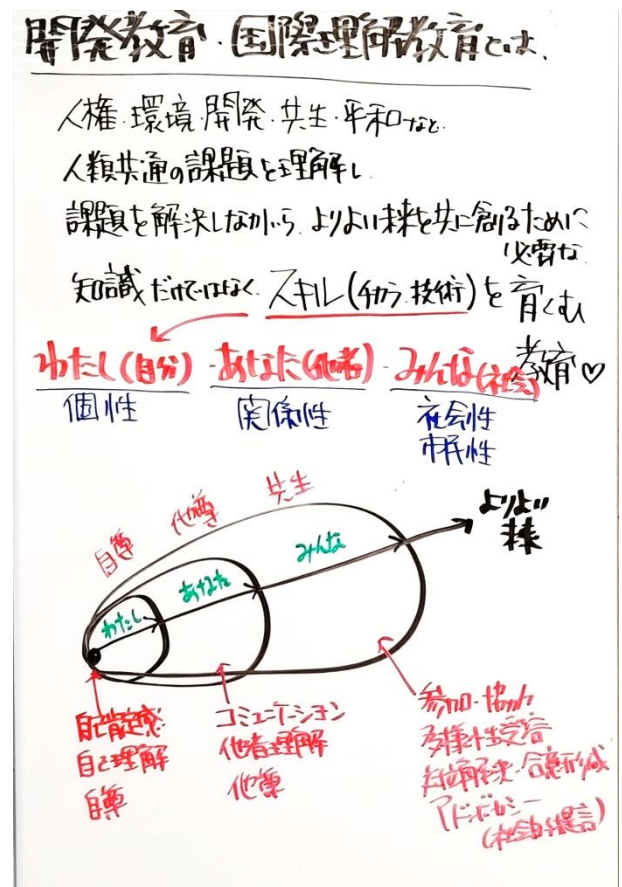 開発教育・国際理解教育とは、
人権・環境・開発・共生・平和など
人類共通の課題を理解し
課題を解決しながら、よりよい未来を共に創るために
必要な
知識だけではなく、スキル(チカラ・技術)を育くむ
教育♡
わたし(自分)・あなた(他者)・みんな(社会)
個性
関係性
社会性
市民性
自尊 他尊 共生
よりよい
未来
わたし
あなた
みんな
自己肯定感
自己理解
自尊
コミュニケーション
他者理解
他尊
参加・協力
多様性受容
対立解決・合意形成
アドボカシー
(社会的提言)